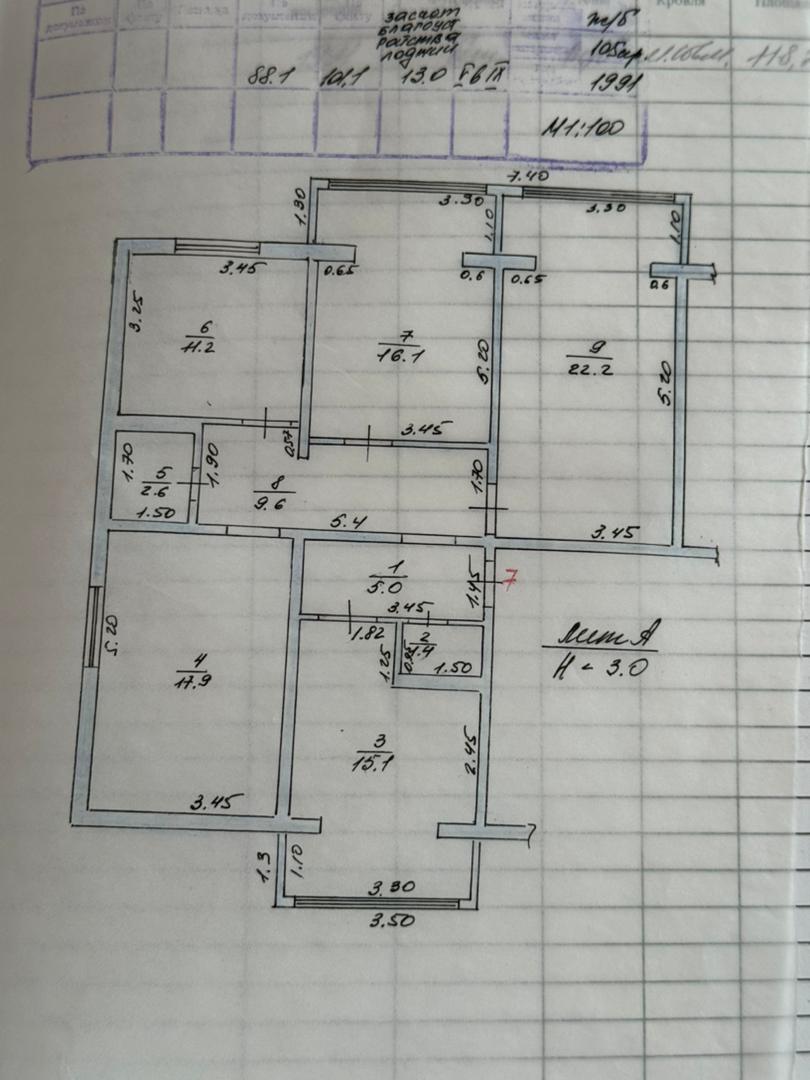 По документам
По
документам
Кровля
за счет
благоуст
ройства
лоджии
ж/б
105 сер
88.1 101,1 13.0 V в IX
1991
118,
М1:100
7.40
1.30
3.30
1.10
3.30
1.10
3.45
0.65
0.6
0.65
0.6
3.25
6
11.2
7
16.1
5.20
9
22.2
5.20
3.45
0.57
1.70
5
2.6
1.90
8
9.6
1.70
1.50
5.4
3.45
1
5.0
1.45
7
3.45
5.20
1.82
2
1.4
0.95
1.25
1.50
Лит А
Н - 3.0
4
17.9
3
15.1
2.45
3.45
1.3
1.10
3.30
3.50